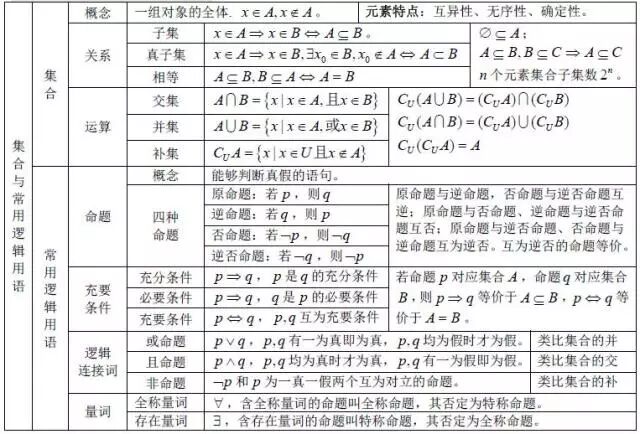 集合与常用逻辑用语
集合
概念
一组对象的全体. x∈A,x∉A。
元素特点：互异性、无序性、确定性。
关系
子集
x∈A⇒x∈B⇔A⊆B。
∅⊆A；
真子集
x∈A⇒x∈B,∃x₀∈B,x₀∉A⇔A⊂B
A⊆B,B⊆C⇒A⊆C
相等
A⊆B,B⊆A⇔A=B
n个元素集合子集数2ⁿ。
运算
交集
A∩B={x|x∈A,且x∈B}
C_U(A∪B)=(C_UA)∩(C_UB)
并集
A∪B={x|x∈A,或x∈B}
C_U(A∩B)=(C_UA)∪(C_UB)
补集
C_UA={x|x∈U且x∉A}
C_U(C_UA)=A
常用逻辑用语
命题
概念
能够判断真假的语句。
四种
命题
原命题：若p，则q
逆命题：若q，则p
否命题：若¬p，则¬q
逆否命题：若¬q，则¬p
原命题与逆命题，否命题与逆否命题互
逆；原命题与否命题、逆命题与逆否命
题互否；原命题与逆否命题、否命题与
逆命题互为逆否。互为逆否的命题等价。
充要
条件
充分条件
p⇒q，p是q的充分条件
若命题p对应集合A，命题q对应集合
必要条件
p⇒q，q是p的必要条件
B，则p⇒q等价于A⊆B，p⇔q等
充要条件
p⇔q，p,q互为充要条件
价于A=B。
逻辑
连接词
或命题
p∨q，p,q有一为真即为真，p,q均为假时才为假。
类比集合的并
且命题
p∧q，p,q均为真时才为真，p,q有一为假即为假。
类比集合的交
非命题
¬p和p为一真一假两个互为对立的命题。
类比集合的补
量词
全称量词
∀，含全称量词的命题叫全称命题，其否定为特称命题。
存在量词
∃，含存在量词的命题叫特称命题，其否定为全称命题。